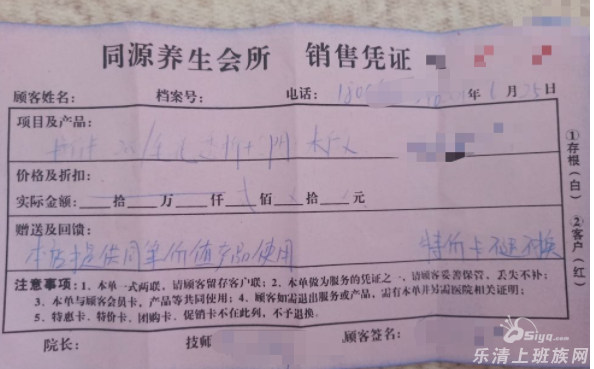 同源养生会所 销售凭证
顾客姓名: 档案号: 电话: 年6月25日
项目及产品:
价格及折扣:
实际金额: 拾 万 仟 佰 拾 元
赠送及回馈:
本店提供同等价值产品使用 特价卡不退不换
注意事项: 1、本单一式两联, 请顾客留存客户联; 2、本单做为服务的凭证之一, 请顾客妥善保管, 丢失不补;
3、本单与顾客会员卡, 产品等共同使用; 4、顾客如需退出服务或产品, 需有本单并另需医院相关证明;
5、特惠卡、特价卡、团购卡、促销卡不在此列, 不予退换。
院长: 技师 顾客签名:
①存根(白)
②客户(红)
Siyq.com
乐清上班族网